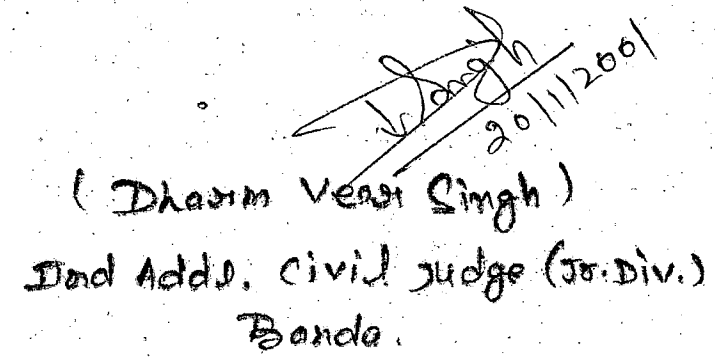 Singh
20/1/2001
( Dharm Veer Singh )
IInd Addl. Civil Judge (Jr. Div.)
Banda.